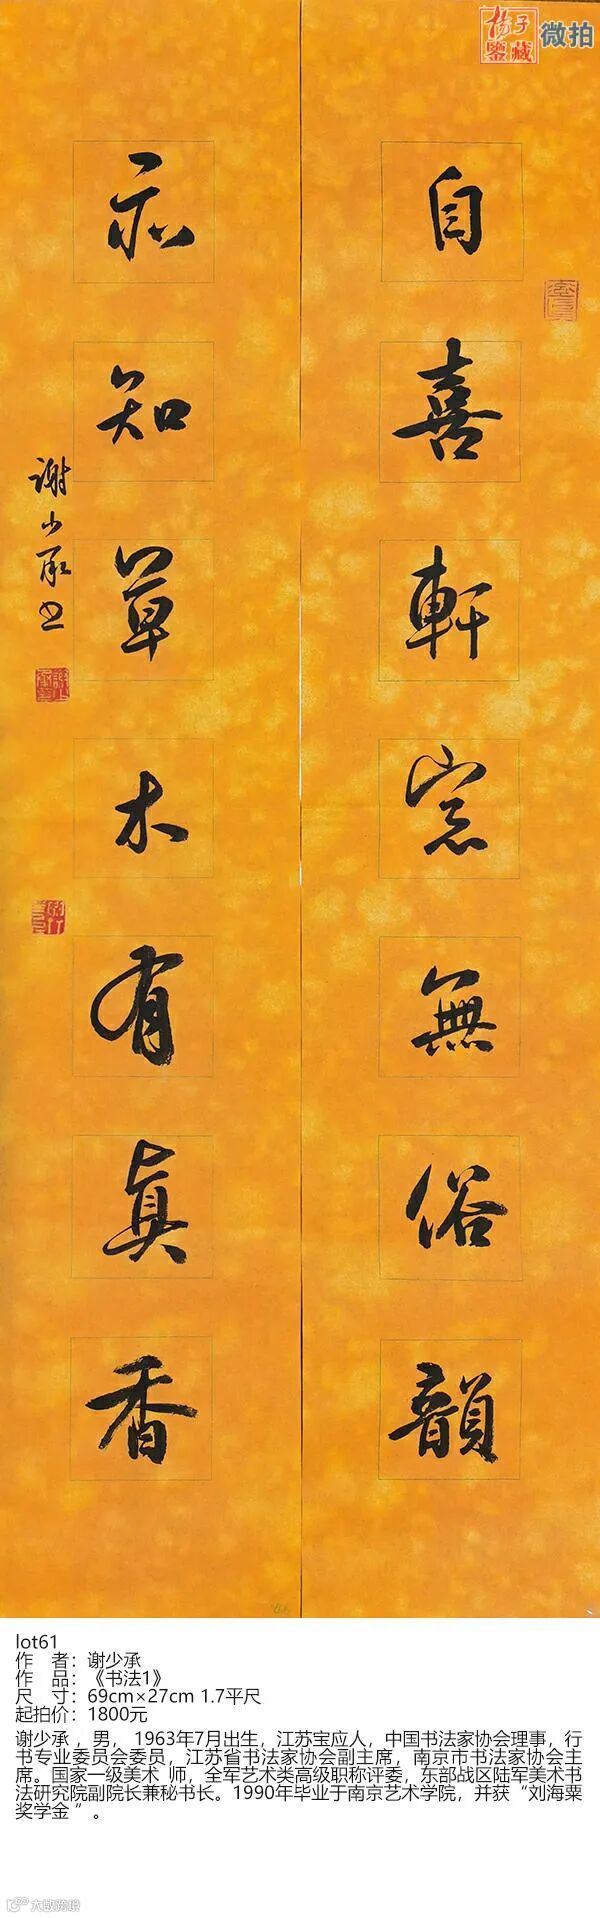 揚子
鑒藏
微拍
自喜軒窓無俗韻
亦知草木有真香
謝少承书
lot61
作 者：谢少承
作 品：《书法1》
尺 寸：69cm×27cm 1.7平尺
起拍价：1800元
谢少承 ，男， 1963年7月出生，江苏宝应人，中国书法家协会理事，行
书专业委员会委员，江苏省书法家协会副主席，南京市书法家协会主
席。国家一级美术 师，全军艺术类高级职称评委，东部战区陆军美术书
法研究院副院长兼秘书长。1990年毕业于南京艺术学院，并获“刘海粟
奖学金 ”。
大数跨境